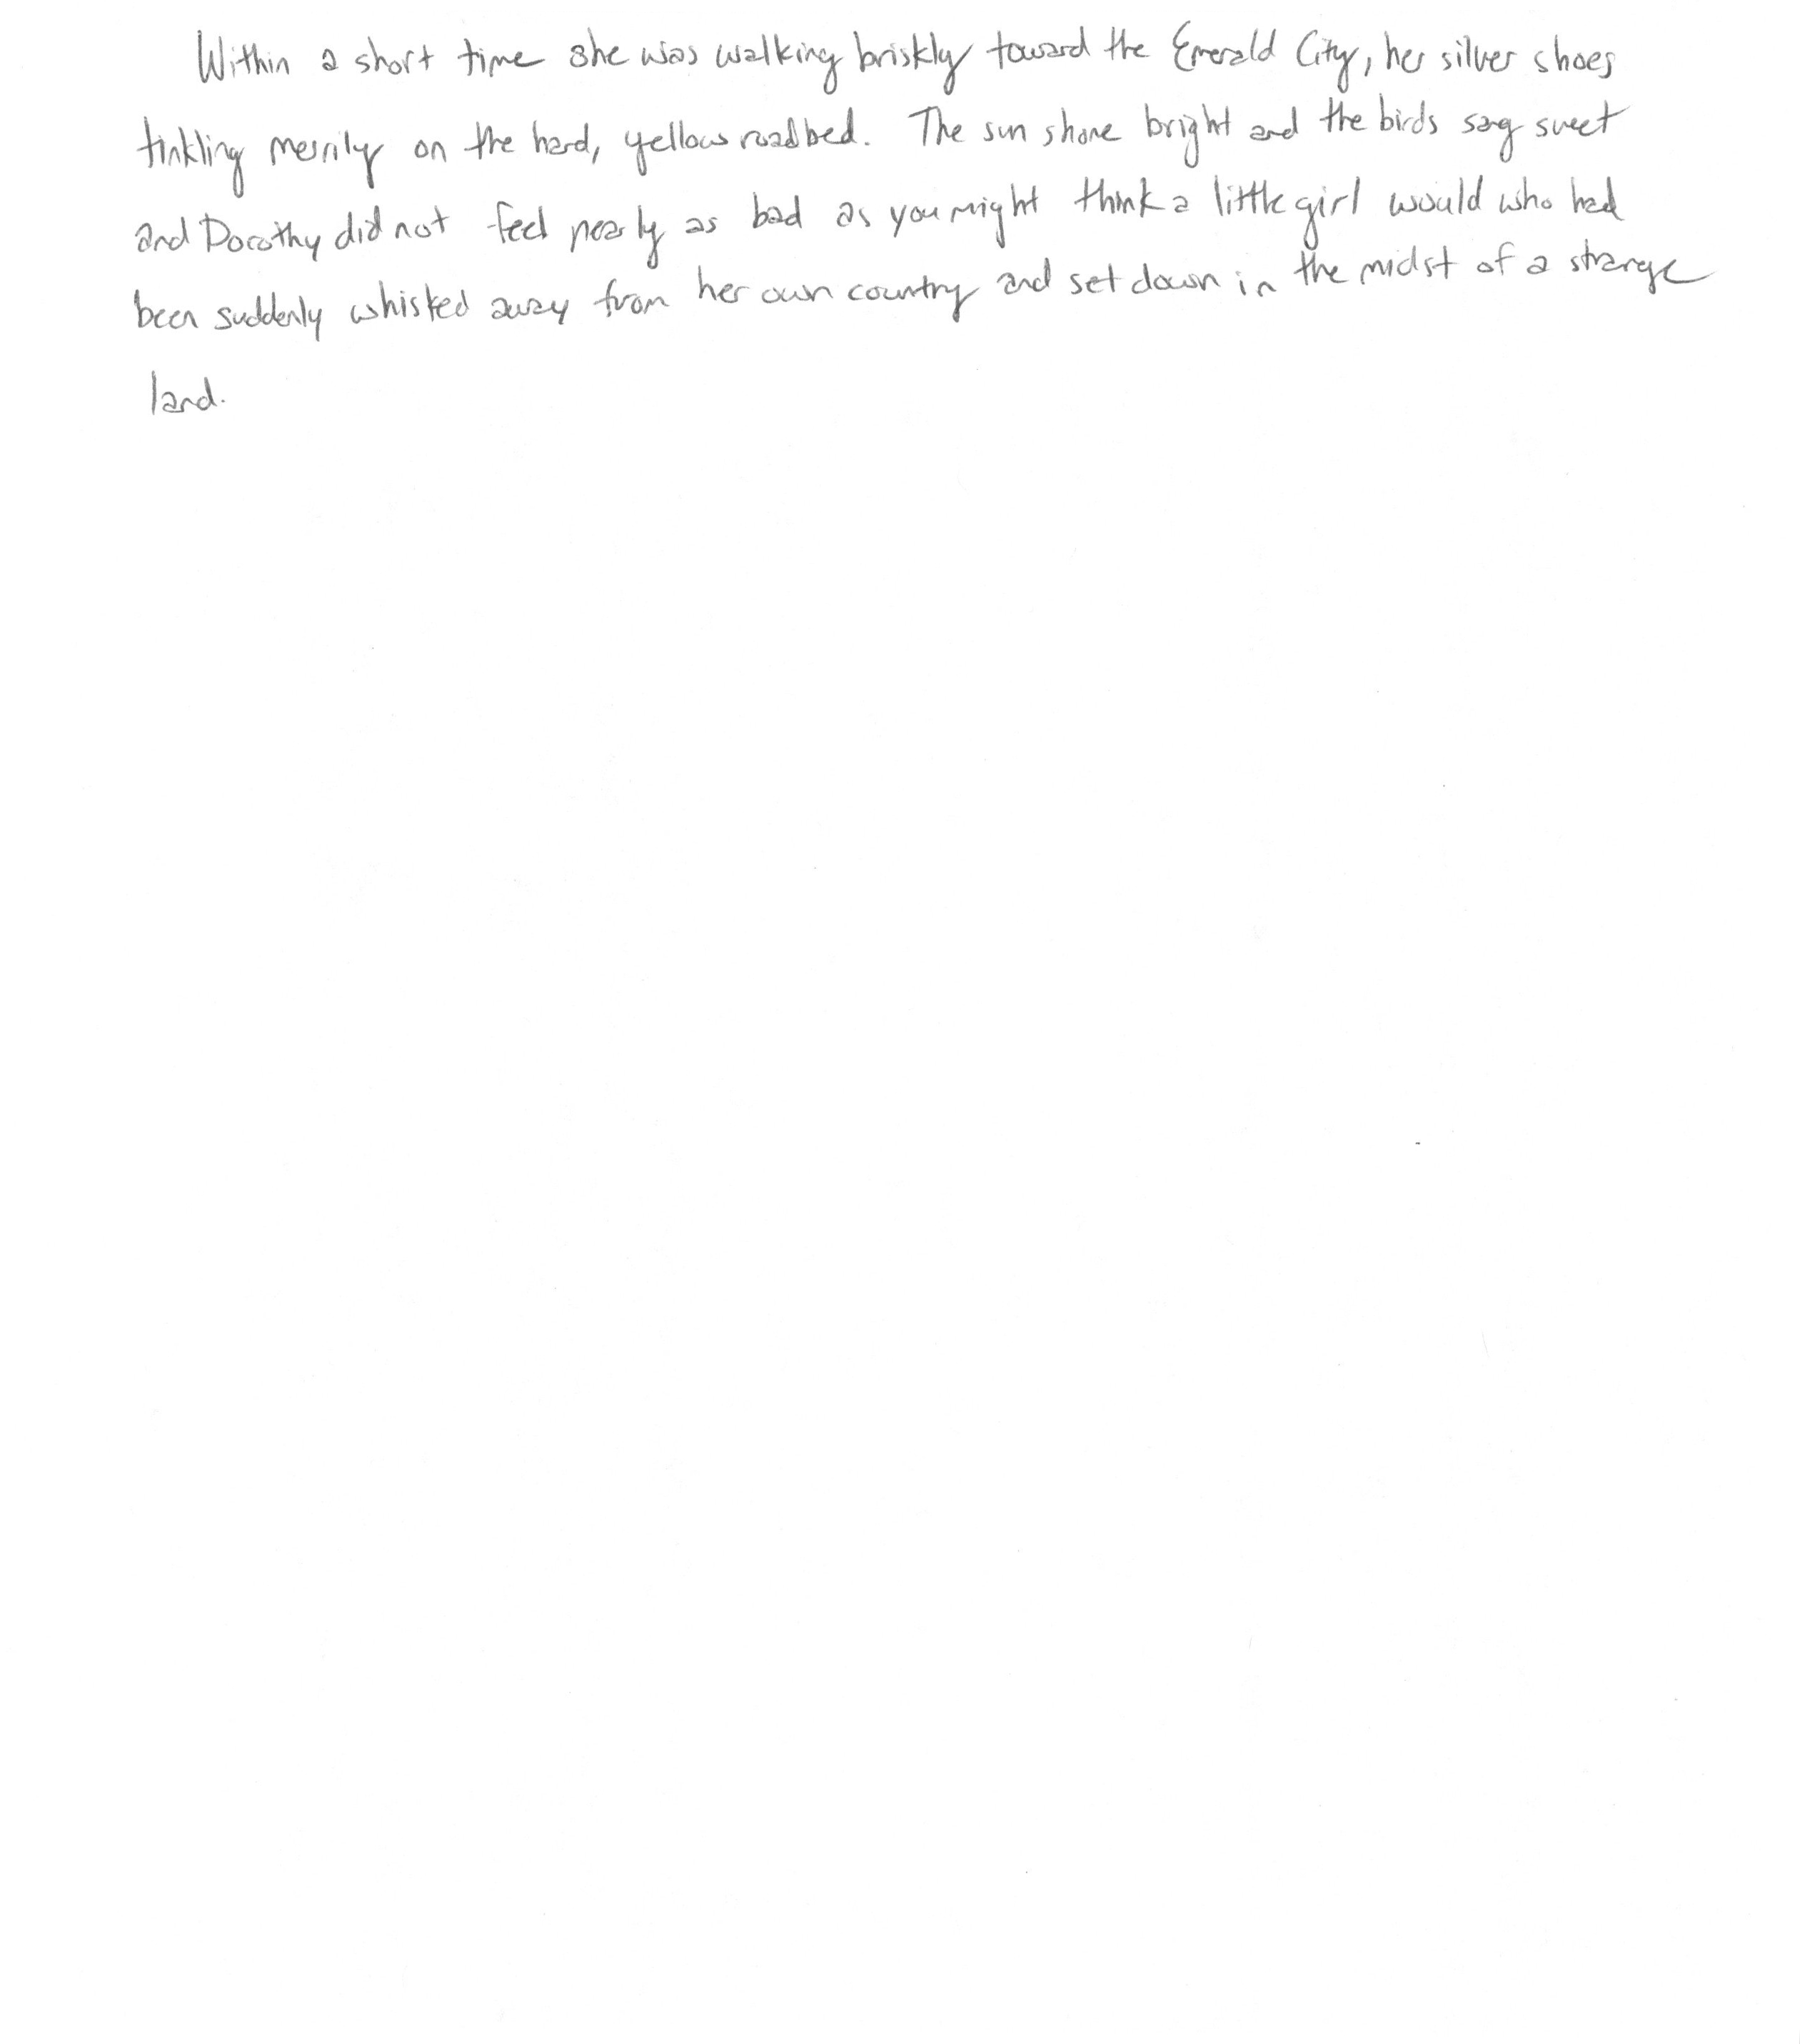 Within a short time she was walking briskly toward the Emerald City, her silver shoes
tinkling merrily on the hard, yellow roadbed. The sun shone bright and the birds sang sweet
and Dorothy did not feel nearly as bad as you might think a little girl would who had
been suddenly whisked away from her own country and set down in the midst of a strange
land.